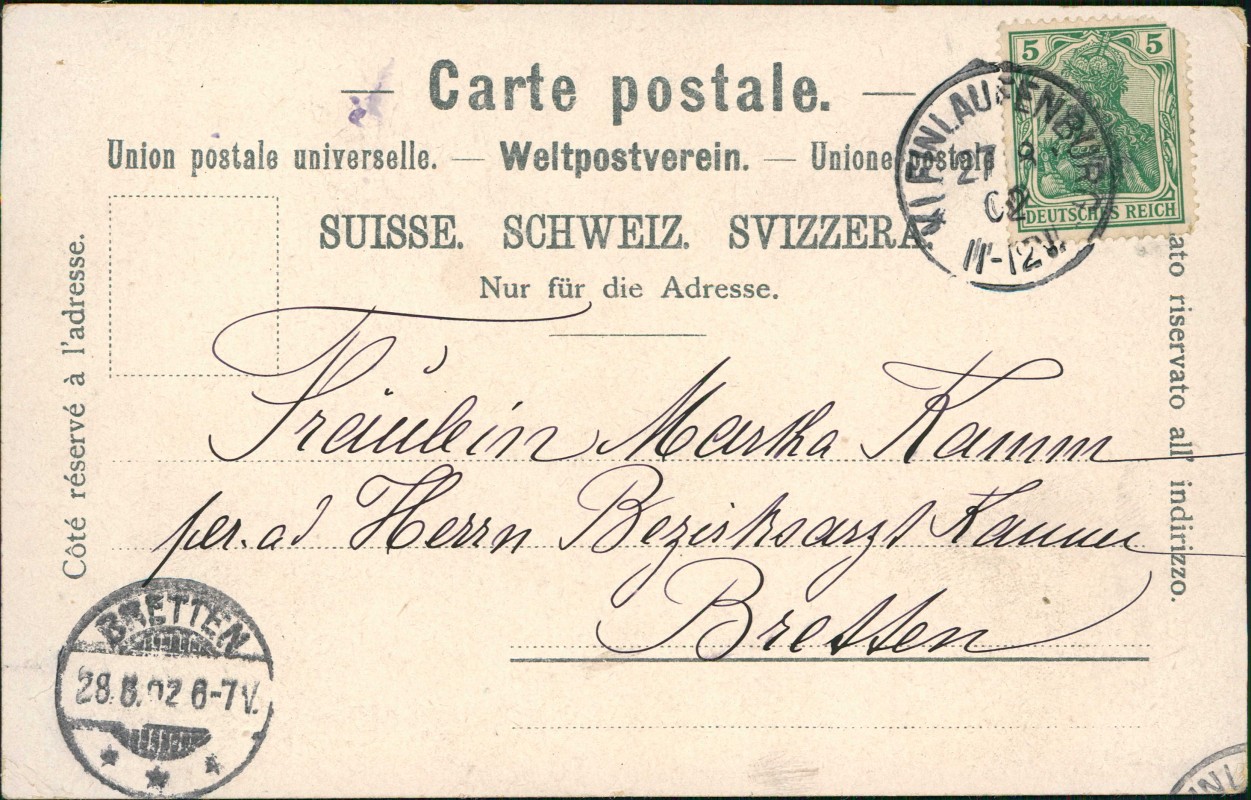 Carte postale.
Union postale universelle. — Weltpostverein. — Unione postale
SUISSE. SCHWEIZ. SVIZZERA.
Nur für die Adresse.
Côté réservé à l'adresse.
ato riservato all' indirizzo.
5 5
DEUTSCHES REICH
KLEINLAUFENBURG
27 8
02
11-12V.
Fräulein Martha Kamm
per. ad Herrn Bezirksarzt Kamm
Bretten
BRETTEN
28.8.02 6-7V.
INL